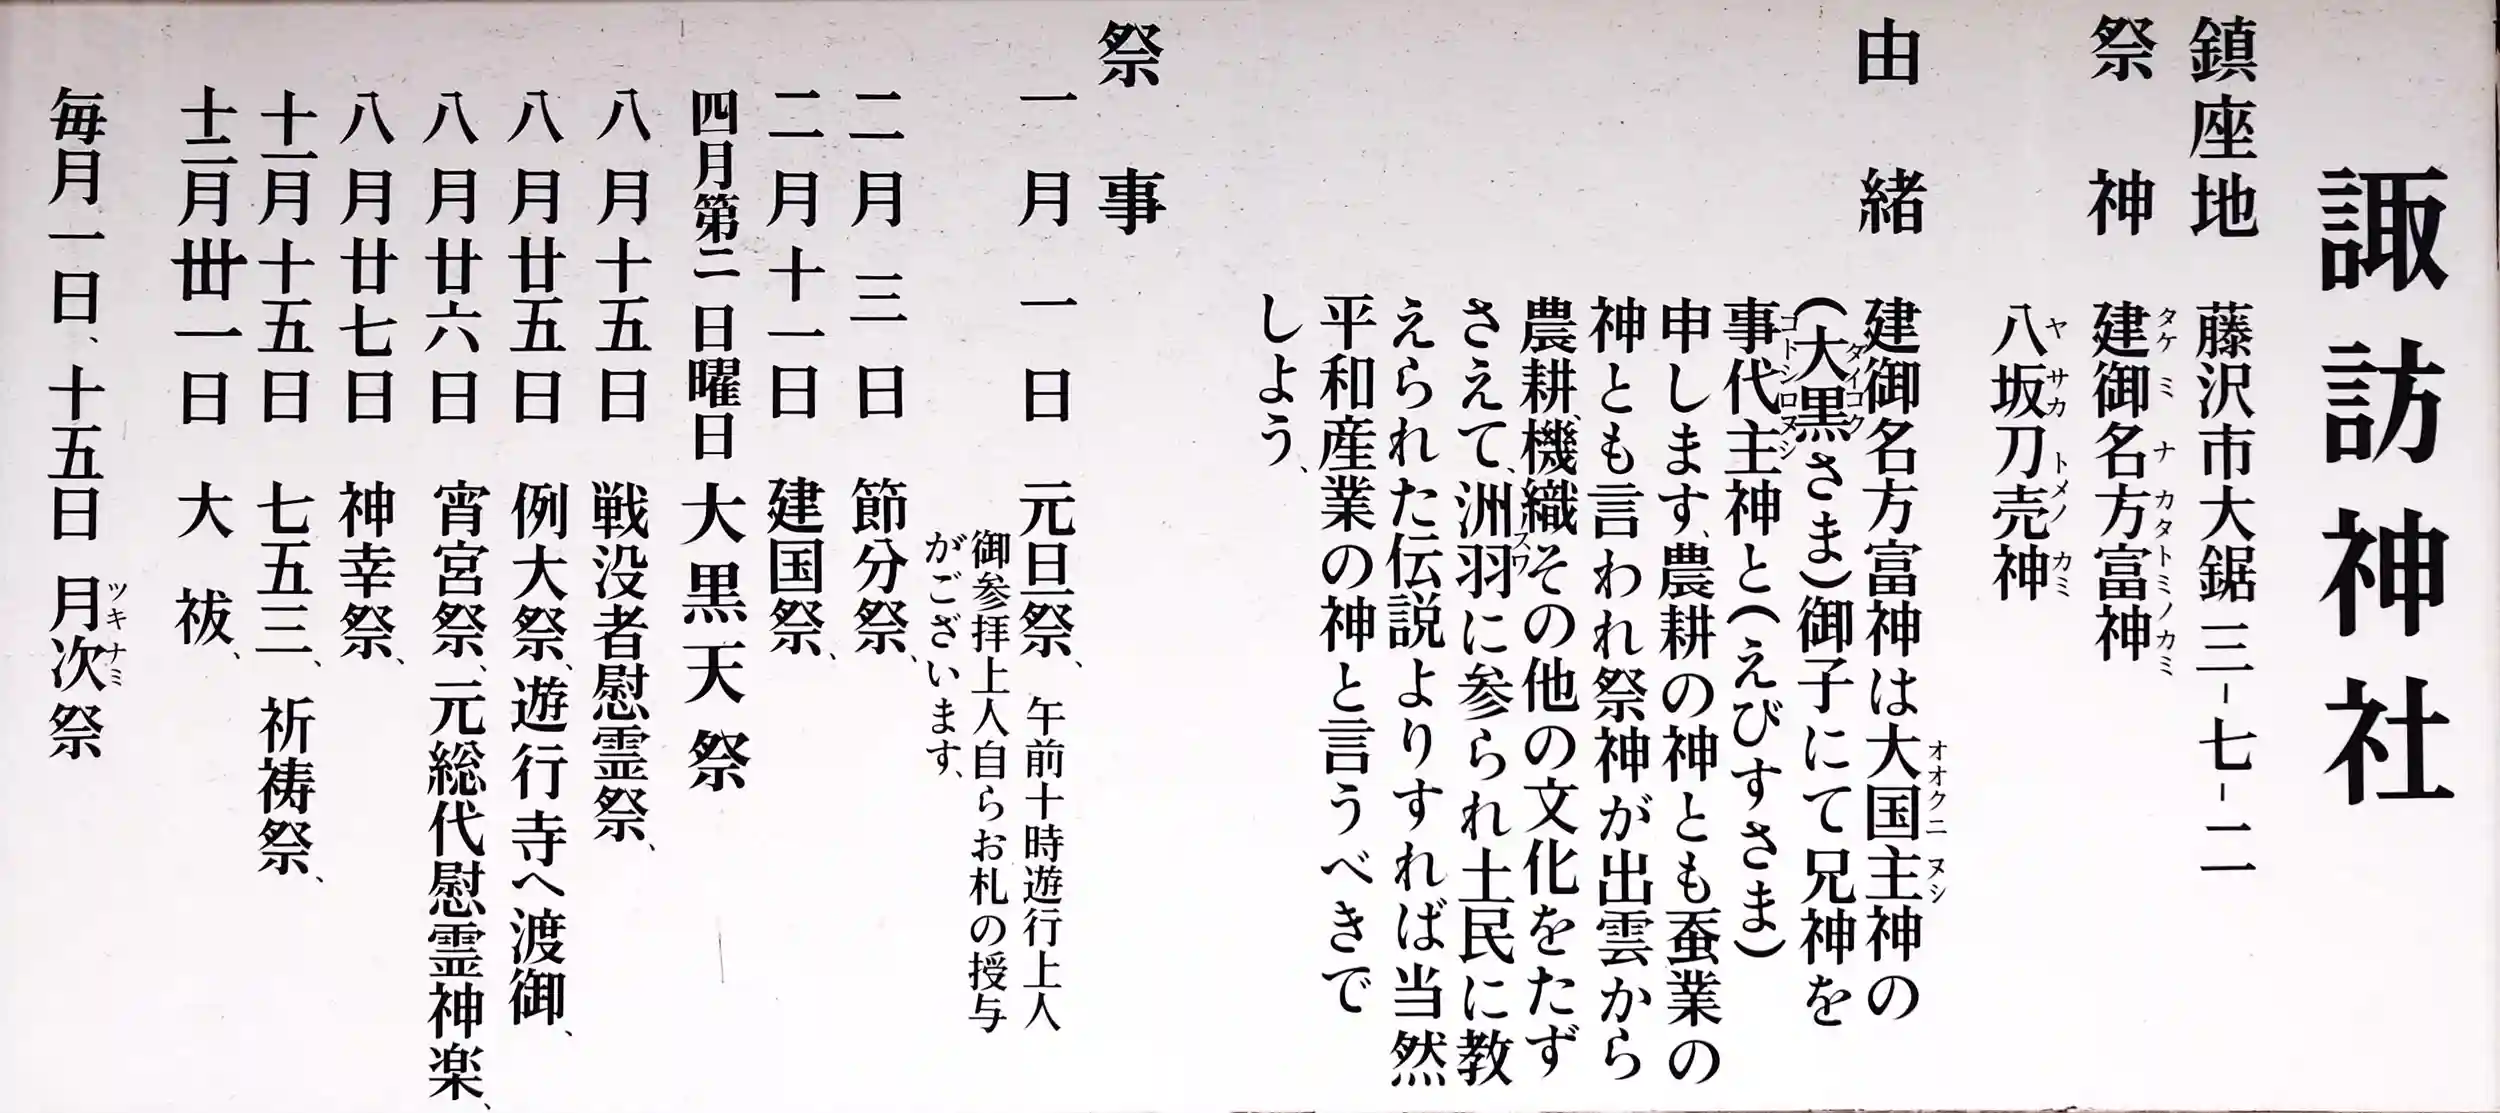 諏訪神社
鎮座地 藤沢市大鋸三-七-二
祭神 建御名方富神
タケミナカタトミノカミ
八坂刀売神
ヤサカトメノカミ
由緒 建御名方富神は大国主神の
オオクニヌシ
(大黒さま)御子にて兄神を
ダイコク
事代主神と(えびすさま)
コトシロヌシ
申します、農耕の神とも蚕業の
神とも言われ祭神が出雲から
農耕機織その他の文化をたず
さえて、洲羽に参られ土民に教
スワ
えられた伝説よりすれば当然
平和産業の神と言うべきで
しよう、
祭事
一月一日 元旦祭、午前十時遊行上人
御参拝上人自らお札の授与
がございます、
二月三日 節分祭、
二月十一日 建国祭、
四月第二日曜日 大黒天祭
八月十五日 戦没者慰霊祭、
八月廿五日 例大祭、遊行寺へ渡御、
八月廿六日 宵宮祭、元総代慰霊神楽、
八月廿七日 神幸祭、
十一月十五日 七五三、祈祷祭、
十二月丗一日 大祓、
毎月一日、十五日 月次祭
ツキナミ